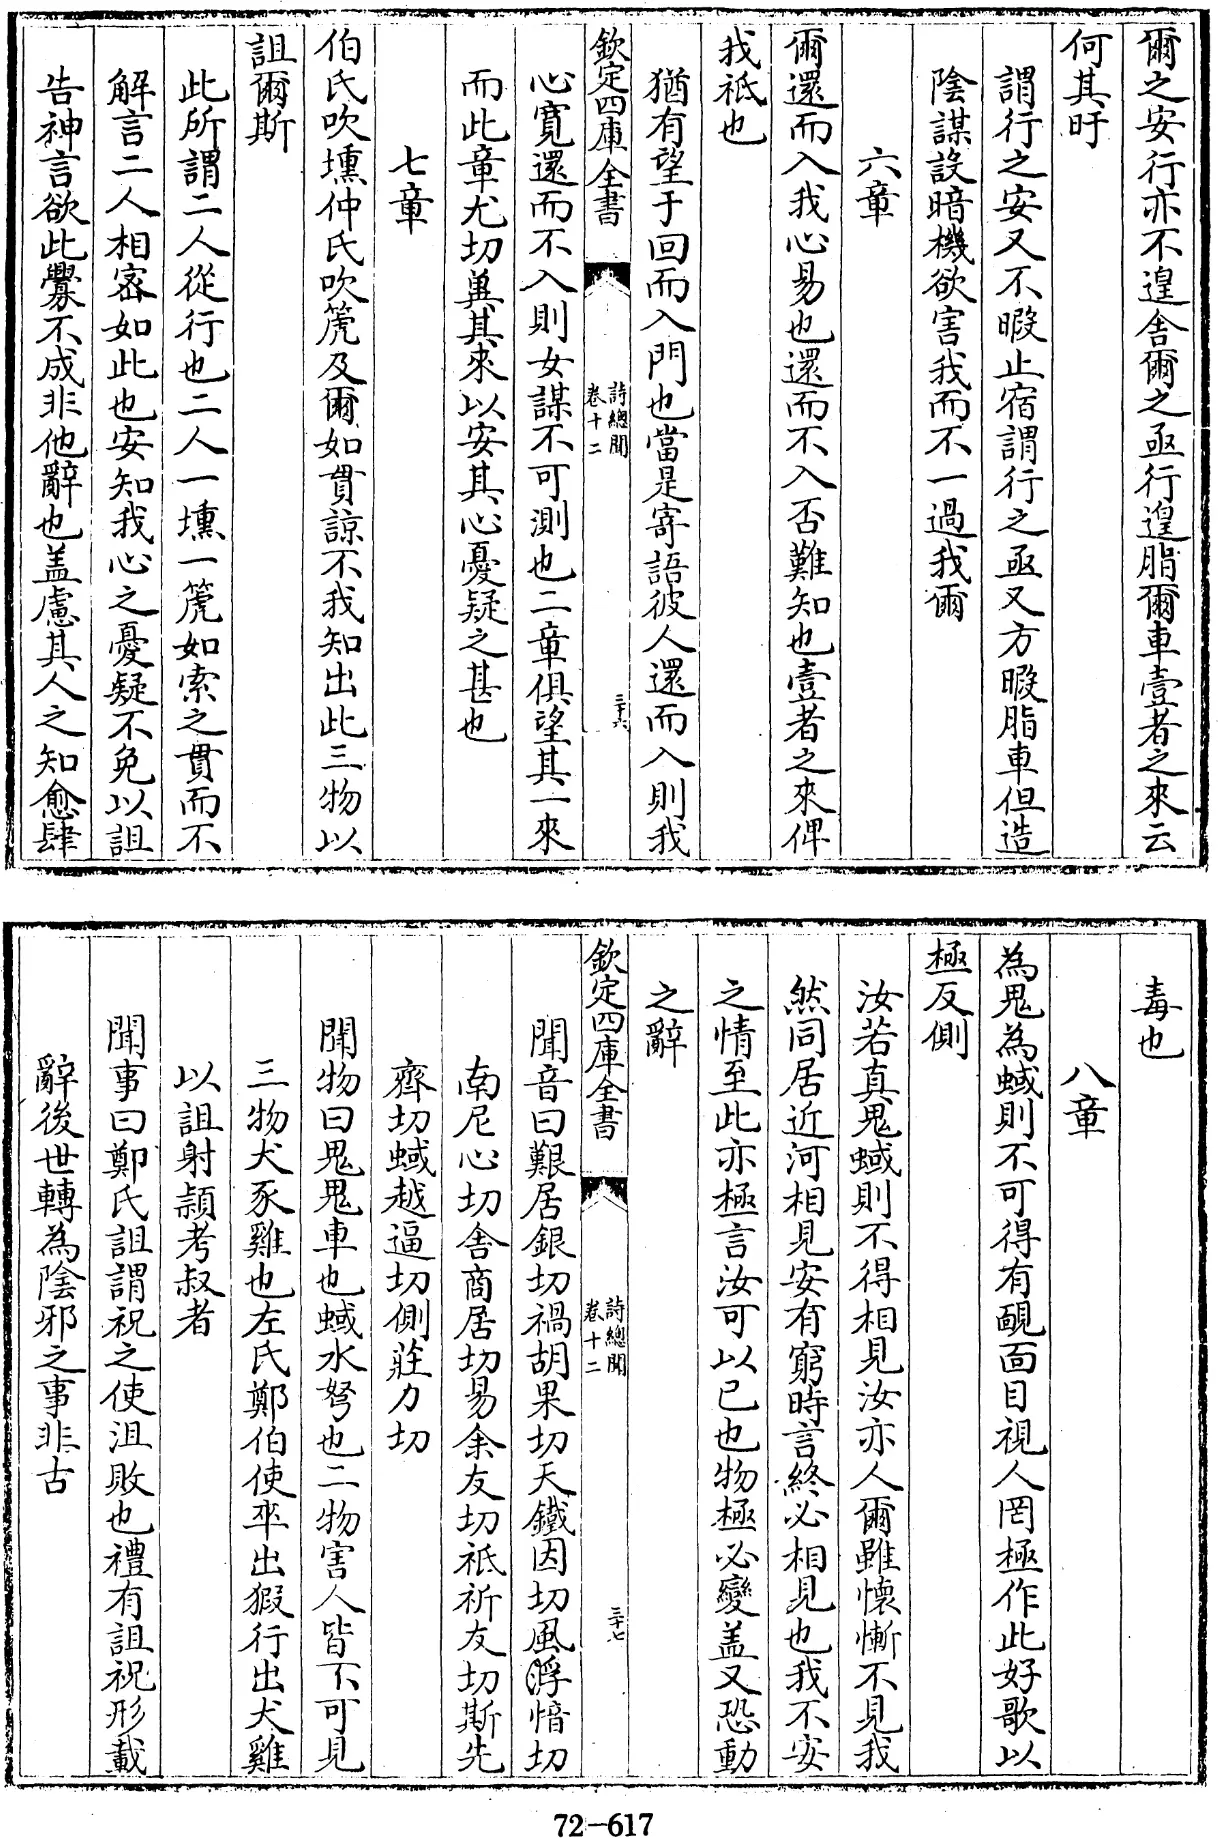 爾之安行亦不遑舍爾之亟行遑脂爾車壹者之來云
何其盱
謂行之安又不暇止宿謂行之亟又方暇脂車但造
陰謀設暗機欲害我而不一過我爾
六章
爾還而入我心易也還而不入否難知也壹者之來俾
我祇也
猶有望于回而入門也當是寄語彼人還而入則我
欽定四庫全書
詩總聞
卷十二
三十六
心寛還而不入則女謀不可測也二章俱望其一來
而此章尤切兾其來以安其心憂疑之甚也
七章
伯氏吹壎仲氏吹箎及爾如貫諒不我知出此三物以
詛爾斯
此所謂二人從行也二人一壎一箎如索之貫而不
解言二人相宻如此也安知我心之憂疑不免以詛
告神言欲此釁不成非他辭也盖慮其人之知愈肆
毒也
八章
為鬼為蜮則不可得有靦面目視人罔極作此好歌以
極反側
汝若真鬼蜮則不得相見汝亦人爾雖懷慚不見我
然同居近河相見安有窮時言終必相見也我不安
之情至此亦極言汝可以已也物極必變盖又恐動
之辭
欽定四庫全書
詩總聞
卷十二
三十七
聞音曰艱居銀切禍胡果切天鐵因切風浮愔切
南尼心切舍商居切易余友切祇祈友切斯先
齊切蜮越逼切側莊力切
聞物曰鬼鬼車也蜮水弩也二物害人皆不可見
三物犬豕雞也左氏鄭伯使卒出豭行出犬雞
以詛射頴考叔者
聞事曰鄭氏詛謂祝之使沮敗也禮有詛祝形載
辭後世轉為陰邪之事非古
72-617